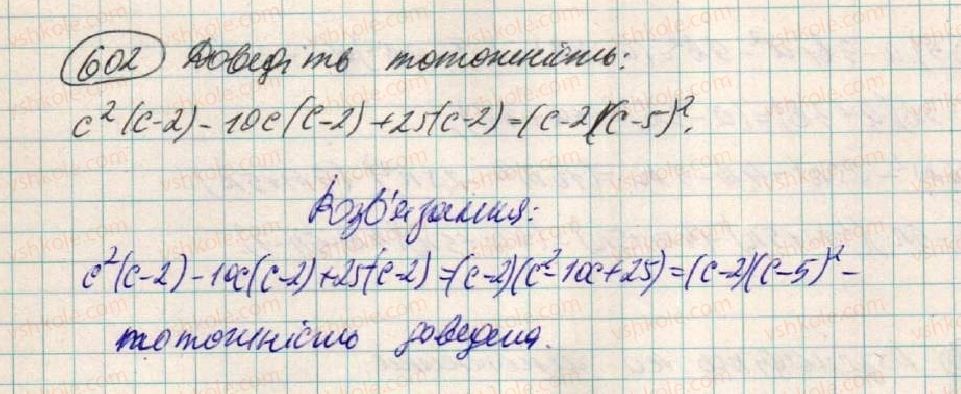 602 Доведіть тотожність:
c²(c-2)-10c(c-2)+25(c-2)=(c-2)(c-5)².
Розв'язання:
c²(c-2)-10c(c-2)+25(c-2)=(c-2)(c²-10c+25)=(c-2)(c-5)² -
тотожність доведена.